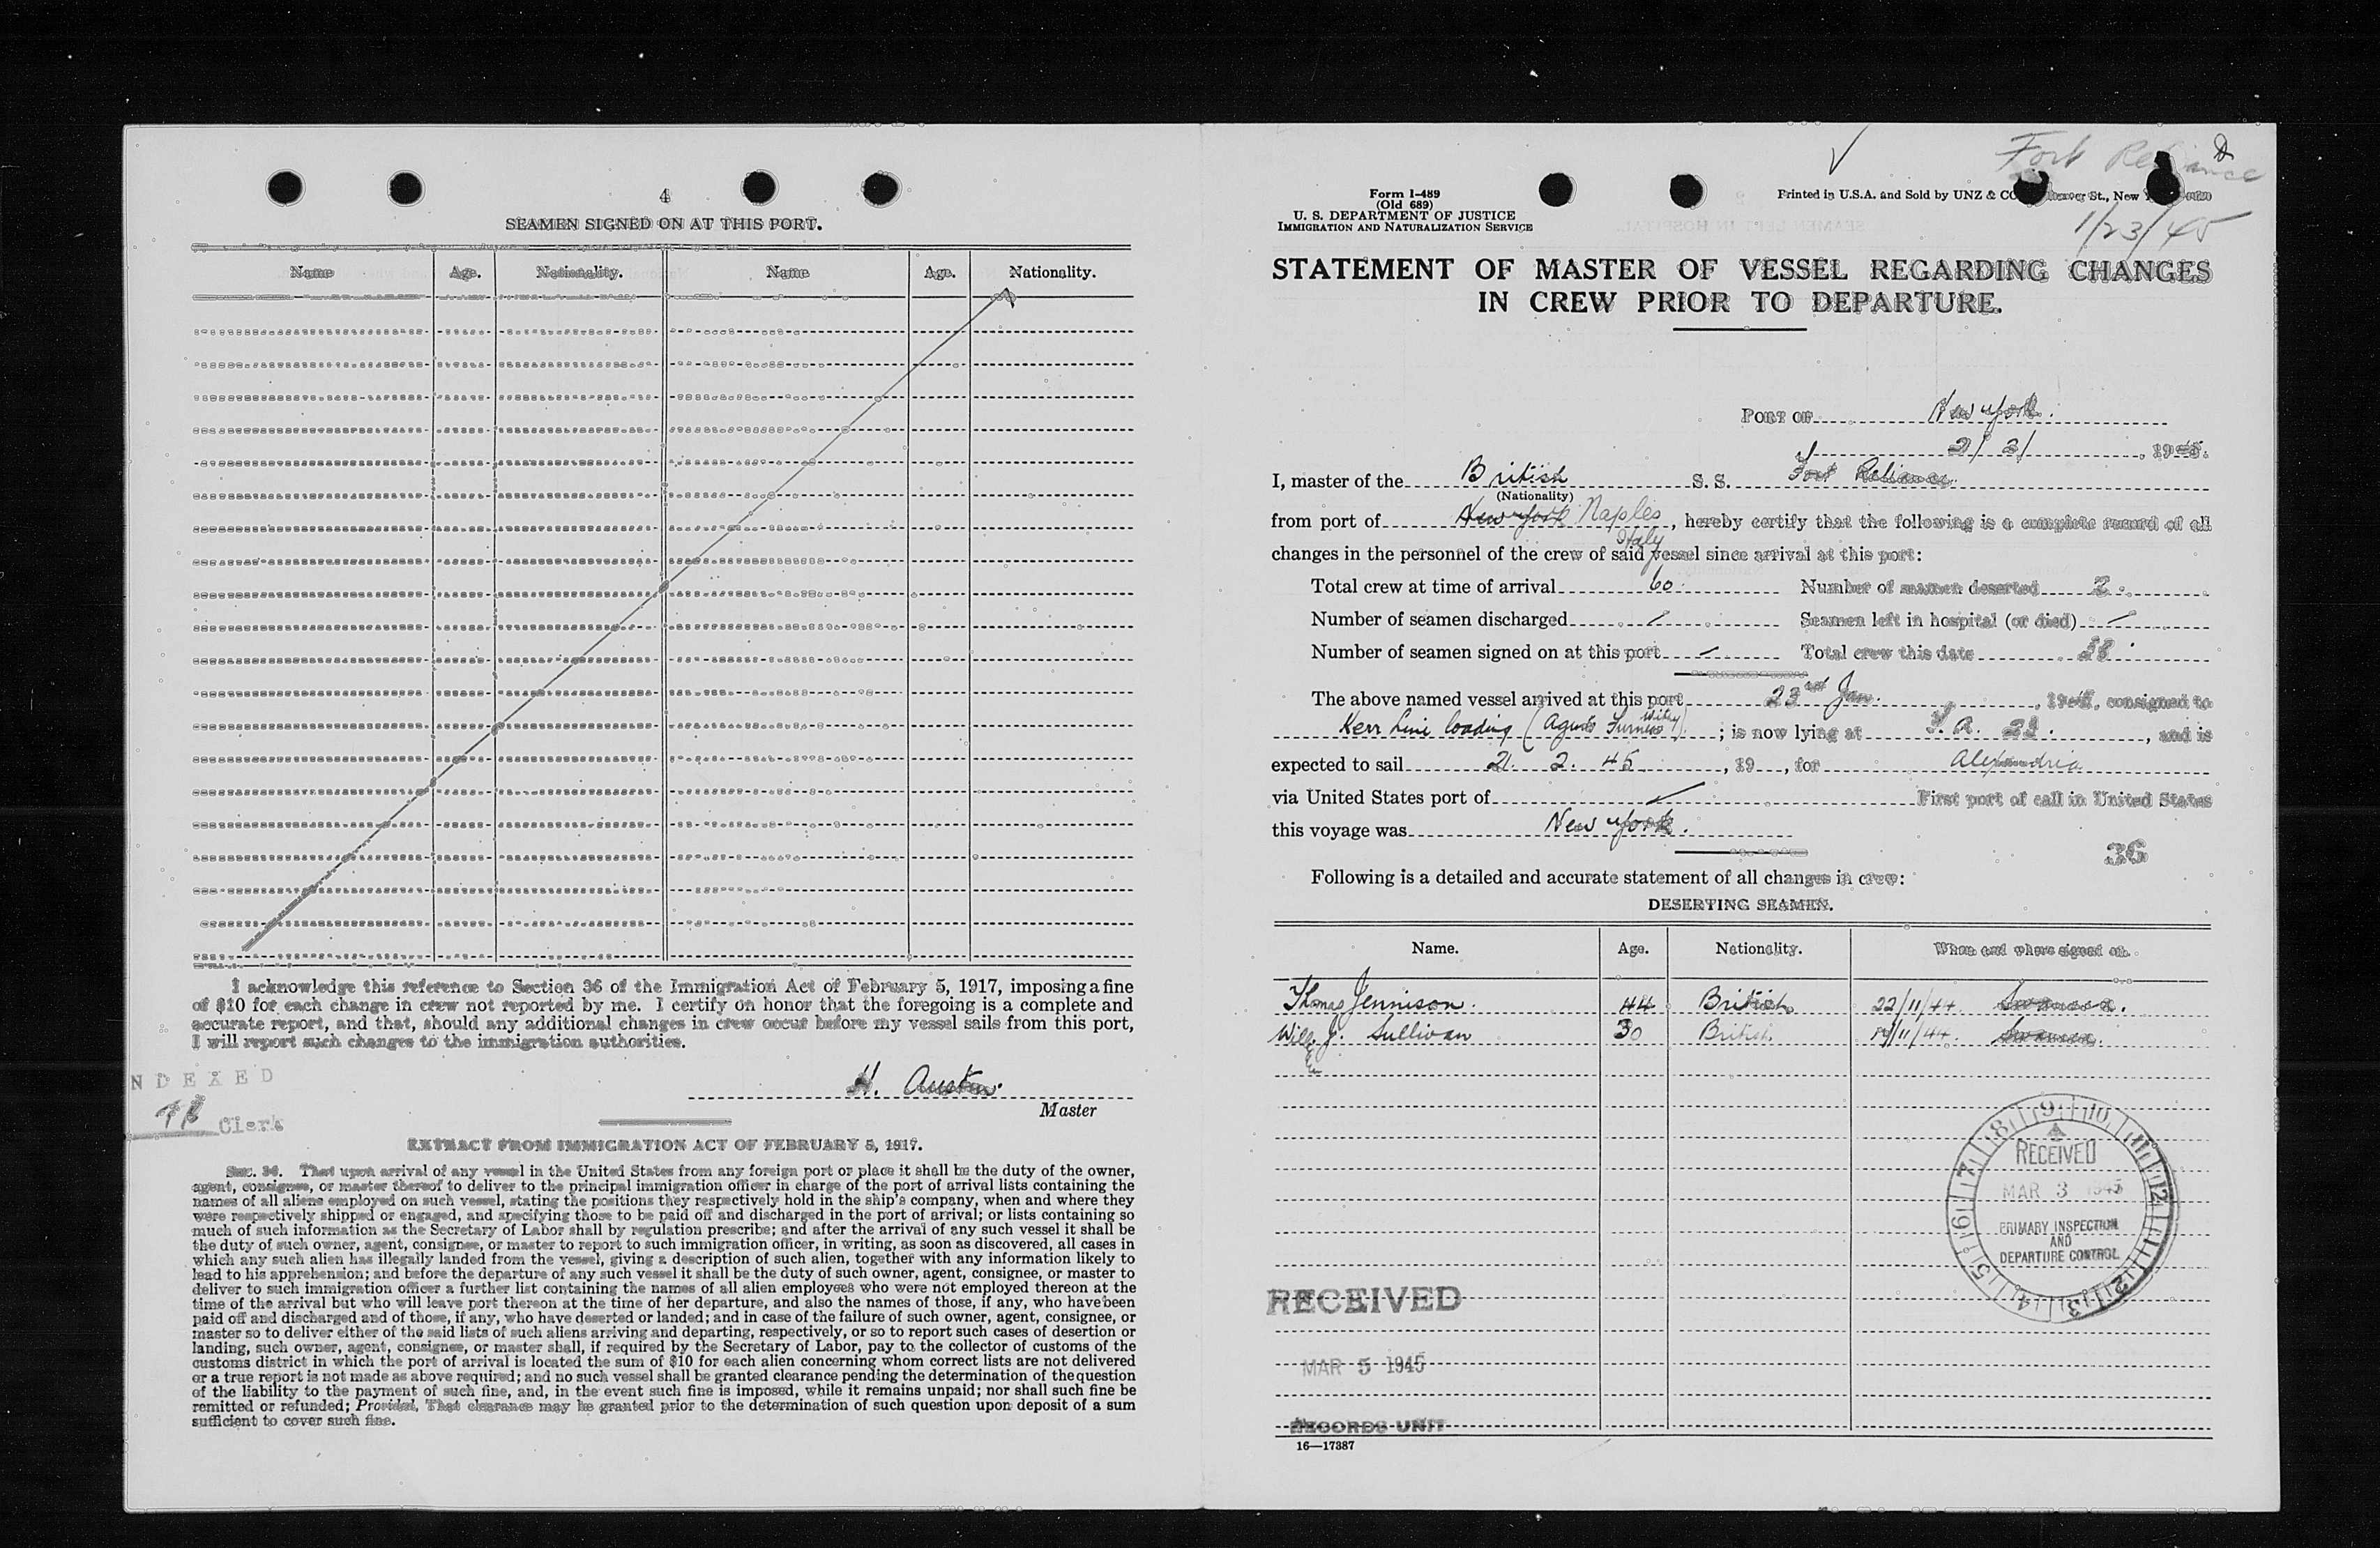 4
SEAMEN SIGNED ON AT THIS PORT.
Name Age. Nationality. Name Age. Nationality.
I acknowledge this reference to Section 36 of the Immigration Act of February 5, 1917, imposing a fine
of $10 for each change in crew not reported by me. I certify on honor that the foregoing is a complete and
accurate report, and that, should any additional changes in crew occur before my vessel sails from this port,
I will report such changes to the immigration authorities.
NDEXED
Clerk
H. Austin.
Master
EXTRACT FROM IMMIGRATION ACT OF FEBRUARY 5, 1917.
Sec. 36. That upon arrival of any vessel in the United States from any foreign port or place it shall be the duty of the owner,
agent, consignee, or master thereof to deliver to the principal immigration officer in charge of the port of arrival lists containing the
names of all aliens employed on such vessel, stating the positions they respectively hold in the ship's company, when and where they
were respectively shipped or engaged, and specifying those to be paid off and discharged in the port of arrival; or lists containing so
much of such information as the Secretary of Labor shall by regulation prescribe; and after the arrival of any such vessel it shall be
the duty of such owner, agent, consignee, or master to report to such immigration officer, in writing, as soon as discovered, all cases in
which any such alien has illegally landed from the vessel, giving a description of such alien, together with any information likely to
lead to his apprehension; and before the departure of any such vessel it shall be the duty of such owner, agent, consignee, or master to
deliver to such immigration officer a further list containing the names of all alien employees who were not employed thereon at the
time of the arrival but who will leave port thereon at the time of her departure, and also the names of those, if any, who have been
paid off and discharged and of those, if any, who have deserted or landed; and in case of the failure of such owner, agent, consignee, or
master so to deliver either of the said lists of such aliens arriving and departing, respectively, or so to report such cases of desertion or
landing, such owner, agent, consignee, or master shall, if required by the Secretary of Labor, pay to the collector of customs of the
customs district in which the port of arrival is located the sum of $10 for each alien concerning whom correct lists are not delivered
or a true report is not made as above required; and no such vessel shall be granted clearance pending the determination of the question
of the liability to the payment of such fine, and, in the event such fine is imposed, while it remains unpaid; nor shall such fine be
remitted or refunded; Provided, That clearance may be granted prior to the determination of such question upon deposit of a sum
sufficient to cover such fine.
Fort Reliance
1/23/45
Form I-489
(Old 689)
U. S. DEPARTMENT OF JUSTICE
IMMIGRATION AND NATURALIZATION SERVICE
Printed in U.S.A. and Sold by UNZ & CO St., New
STATEMENT OF MASTER OF VESSEL REGARDING CHANGES
IN CREW PRIOR TO DEPARTURE.
PORT OF New York.
2/ 2/ , 1945.
I, master of the British S. S. Fort Reliance
(Nationality)
from port of New York Naples Italy, hereby certify that the following is a complete record of all
changes in the personnel of the crew of said vessel since arrival at this port:
Total crew at time of arrival 60. Number of seamen deserted 2.
Number of seamen discharged / Seamen left in hospital (or died) /
Number of seamen signed on at this port / Total crew this date 58.
The above named vessel arrived at this port 23rd Jan. , 1945, consigned to
Kerr Line loading (Agents Furness Withy) ; is now lying at , and is
expected to sail 21. 2. 45 , 19 , for Alexandria
via United States port of First port of call in United States
this voyage was New York.
36
Following is a detailed and accurate statement of all changes in crew:
DESERTING SEAMEN.
Name. Age. Nationality. When and where signed on.
Thomas Jennison. 44 British 22/11/44. Swansea.
J. Sullivan 30 British. /11/44. Swansea.
RECEIVED
MAR 3 1945
PRIMARY INSPECTION
AND
DEPARTURE CONTROL
RECEIVED
MAR 5 1945
RECORDS UNIT
16—17387